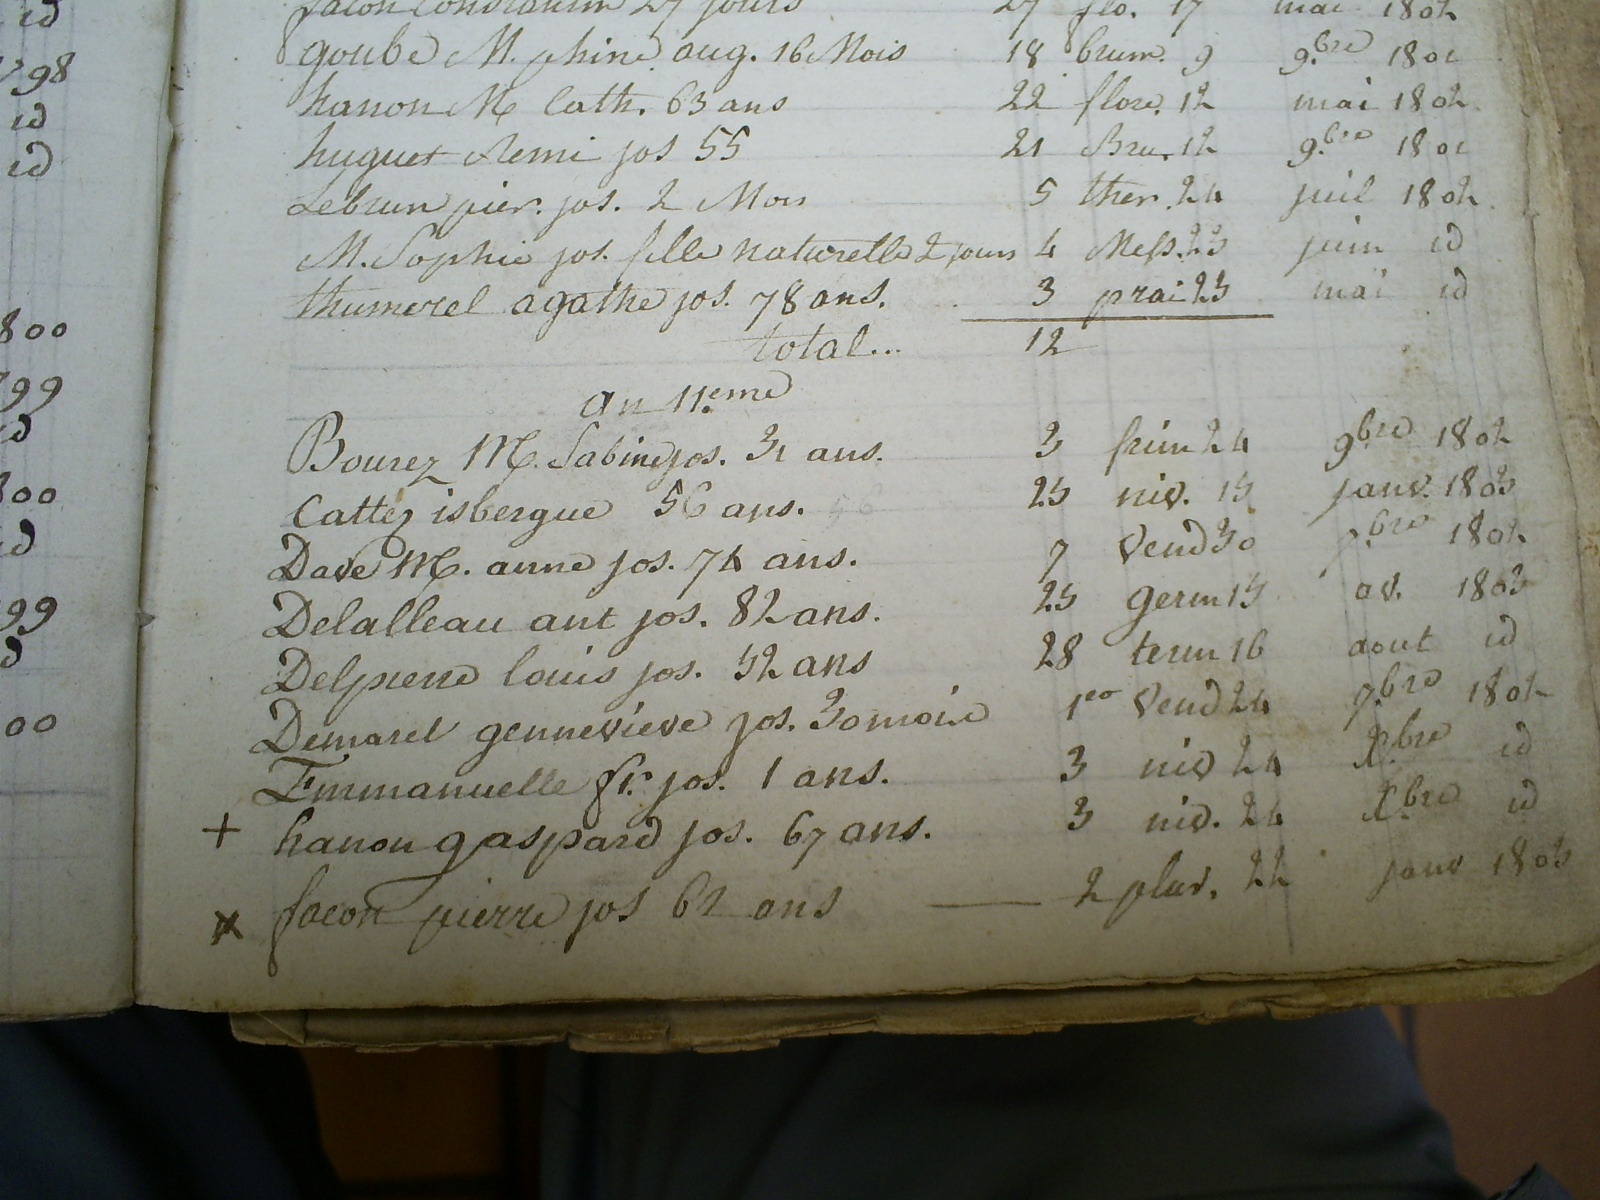 id
798
id
id
800
799
id
800
id
99
d
00
facon Constantin 27 jours 27 flo. 17 mai 1802
goube M. phine aug. 16 Mois 18 brum. 9 9.bre 1801
hanon M Cath. 63 ans 22 flore. 12 mai 1802
huguet Remi jos 55 21 Bru. 12 9.bre 1801
Lebrun pier. jos. 2 Mois 5 ther. 24 juil 1802
M. Sophie jos. fille naturelle 2 jours 4 Mess. 23 juin id
thumerel agathe jos. 78 ans. 3 prai 23 mai id
total... 12
an 11.eme
Bourez M. Sabine jos. 31 ans. 3 frim 24 9bre 1802
Cattez isbergue 56 ans. 56 25 niv. 15 janv. 1803
Dave M. anne jos. 74 ans. 7 Vend 30 bre 1802
Delalleau ant jos. 82 ans. 25 germ 15 av. 1803
Delpierre louis jos. 52 ans 28 term 16 aout id
Demaret gennevieve jos. 30 mois 1eo Vend 24 7.bre 1802
Emmanuelle fr. jos. 1 ans. 3 niv 24 X.bre id
+ hanon gaspard jos. 67 ans. 3 niv. 24 X.bre id
x facon pierre jos 62 ans 2 pluv. 22 janv 1803